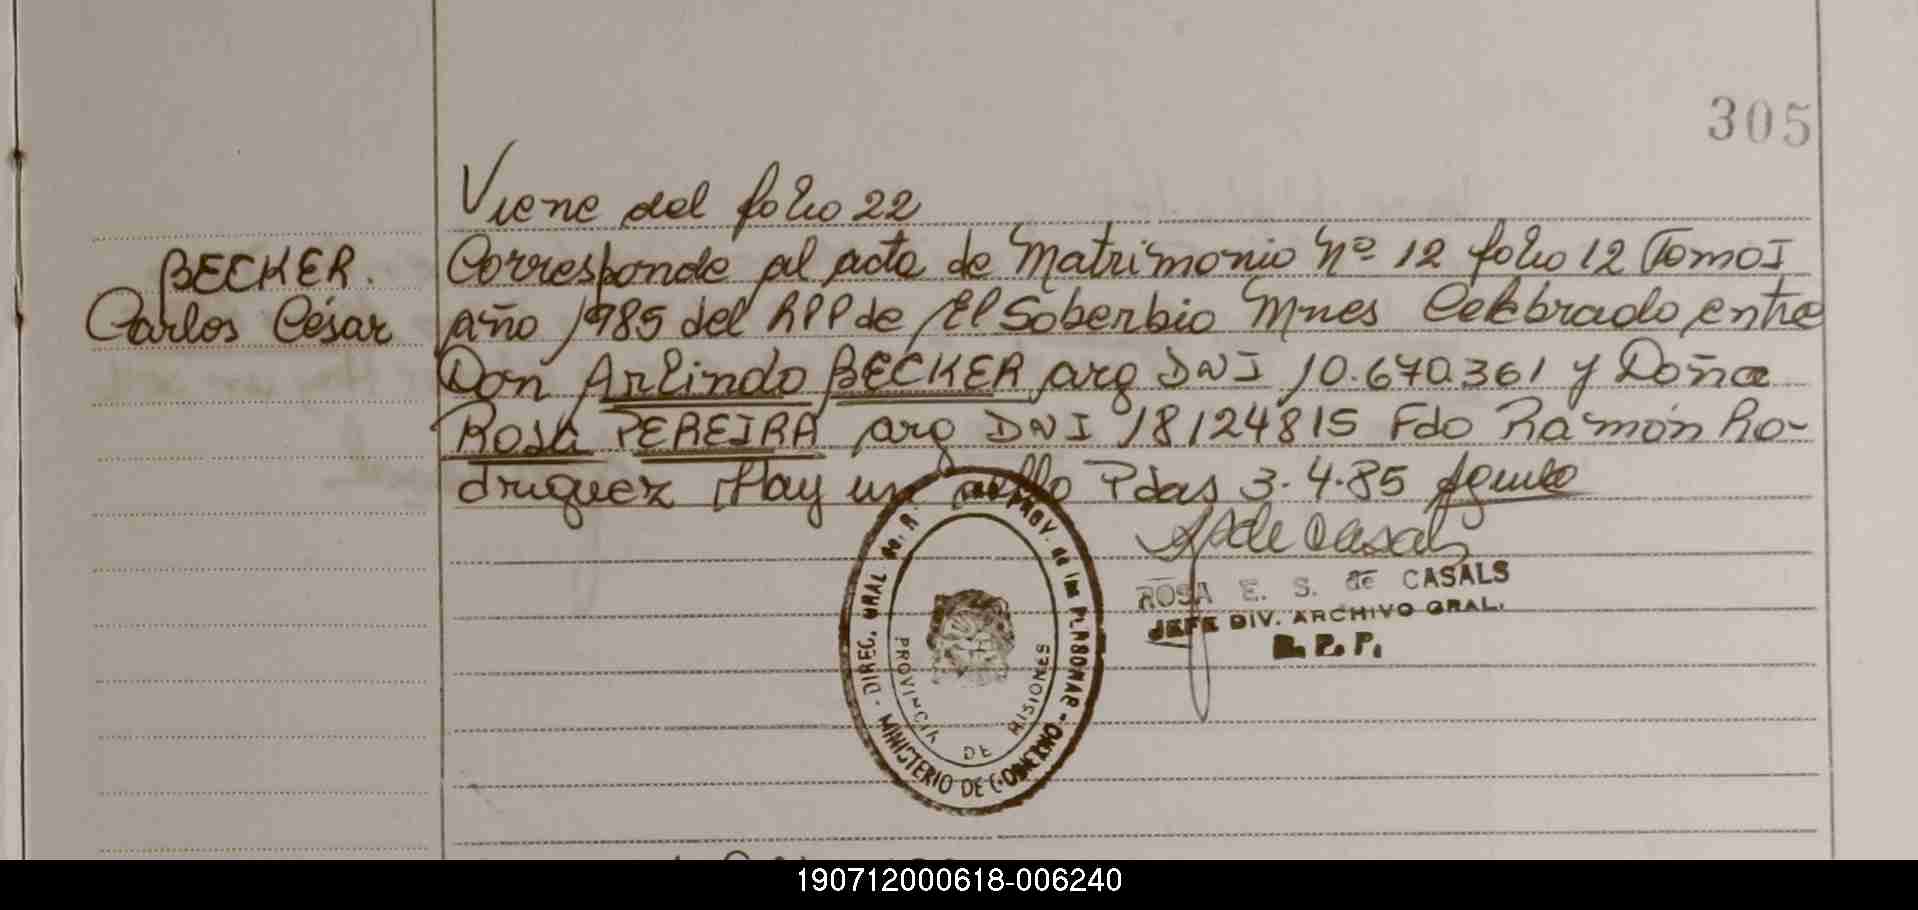 305
Viene del folio 22
BECKER.
Carlos César
Corresponde al acta de Matrimonio Nº 12 folio 12 Tomo I
año 1985 del RPP de El Soberbio Mnes Celebrado entre
Don Arlindo BECKER arg DNI 10.670.361 y Doña
Rosa PEREIRA arg DNI 18124815 Fdo Ramón Ro-
driguez Hay un sello Pdas 3.4.85
de Casals
ROSA E. S. de CASALS
JEFE DIV. ARCHIVO GRAL.
R. P. P.
DIREC. GRAL de. R. PROV. de las PERSONAS - MINISTERIO DE GOBIERNO -
PROVINCIA DE MISIONES
190712000618-006240